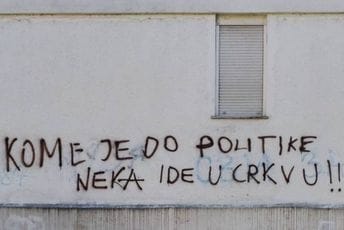 KOME JE DO POLITIKE
NEKA IDE U CRKVU!!